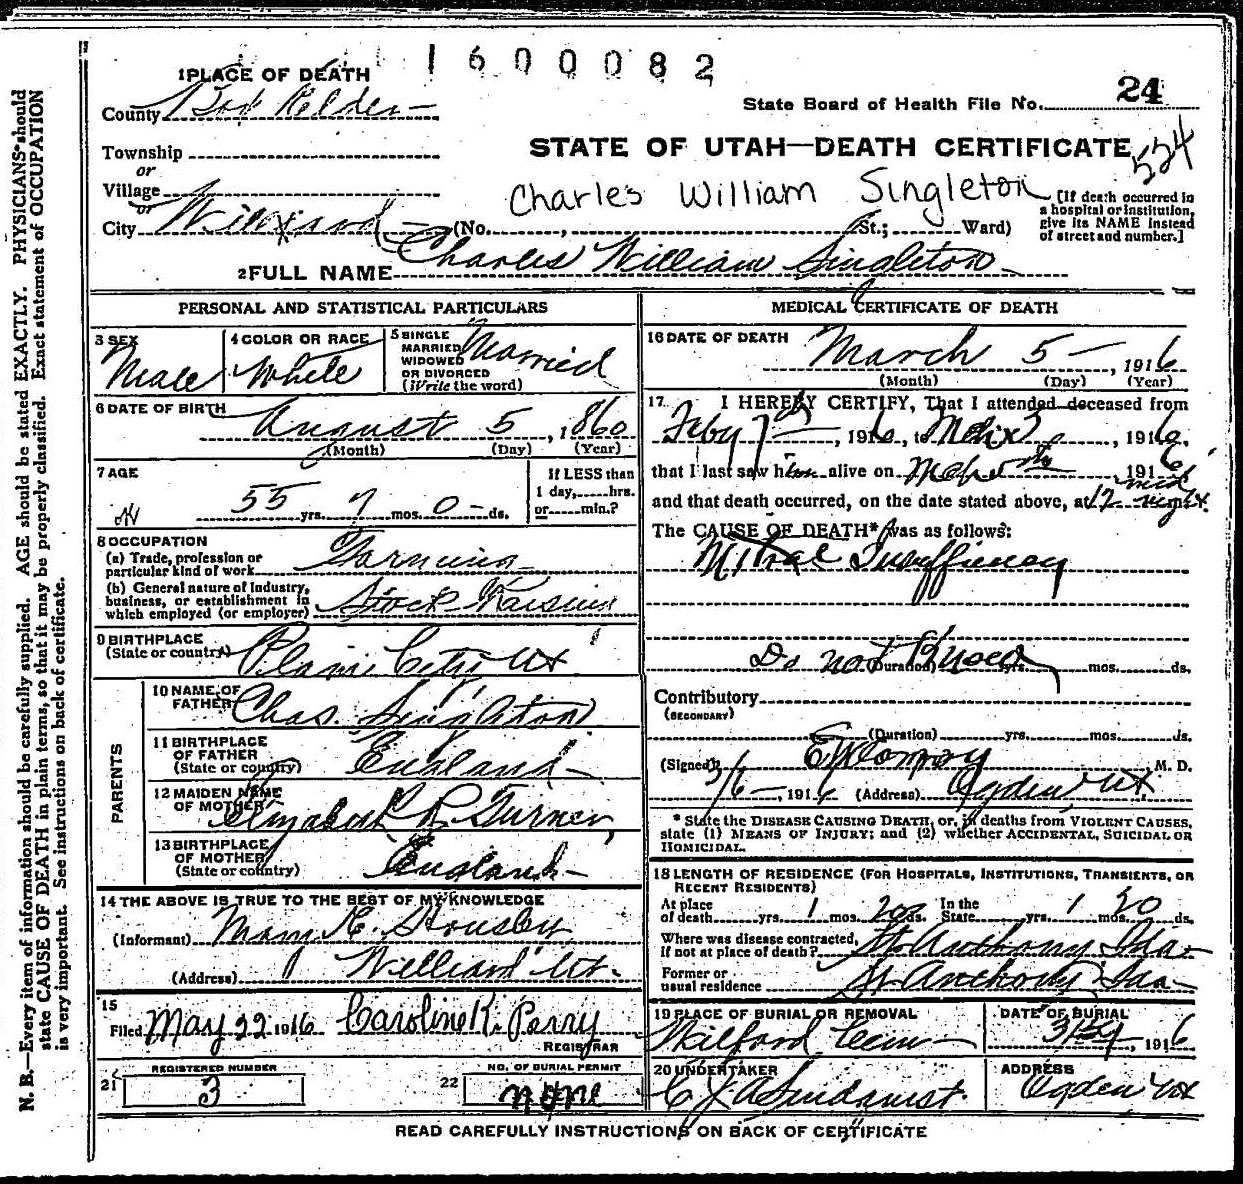 1600082
1 PLACE OF DEATH
County Box Elder
State Board of Health File No. 24
Township
or
Village
or
City Willard
STATE OF UTAH—DEATH CERTIFICATE
524
Charles William Singleton
(No. , St.; Ward)
[If death occurred in a hospital or institution, give its NAME instead of street and number.]
2 FULL NAME Charles William Singleton
PERSONAL AND STATISTICAL PARTICULARS
3 SEX Male
4 COLOR OR RACE White
5 SINGLE MARRIED WIDOWED OR DIVORCED (Write the word) Married
6 DATE OF BIRTH August 5, 1860
(Month) (Day) (Year)
7 AGE
55 yrs. 7 mos. 0 ds.
If LESS than 1 day, hrs. or min.?
8 OCCUPATION
(a) Trade, profession or particular kind of work Farming
(b) General nature of industry, business, or establishment in which employed (or employer) Stock Raising
9 BIRTHPLACE (State or country) Plain City Ut
PARENTS
10 NAME OF FATHER Chas. Singleton
11 BIRTHPLACE OF FATHER (State or country) England
12 MAIDEN NAME OF MOTHER Elizabeth R. Turner
13 BIRTHPLACE OF MOTHER (State or country) England
14 THE ABOVE IS TRUE TO THE BEST OF MY KNOWLEDGE
(Informant) Mary E.
(Address) Willard Ut.
15
Filed May 22 1916 Caroline K. Perry
REGISTRAR
21 REGISTERED NUMBER 3
22 NO. OF BURIAL PERMIT none
MEDICAL CERTIFICATE OF DEATH
16 DATE OF DEATH March 5, 1916
(Month) (Day) (Year)
17 I HEREBY CERTIFY, That I attended deceased from
Feby, 1916, to, 1916,
that I last saw him alive on Mch, 1916
and that death occurred, on the date stated above, at 12 mid night.
The CAUSE OF DEATH* was as follows:
Mitral Insufficiency
Do not Know
(Duration) yrs. mos. ds.
Contributory
(SECONDARY)
(Duration) yrs. mos. ds.
(Signed) M. D.
3/6, 1916 (Address) Ogden, Ut
* State the DISEASE CAUSING DEATH, or, in deaths from VIOLENT CAUSES, state (1) MEANS OF INJURY; and (2) whether ACCIDENTAL, SUICIDAL OR HOMICIDAL.
18 LENGTH OF RESIDENCE (FOR HOSPITALS, INSTITUTIONS, TRANSIENTS, OR RECENT RESIDENTS)
At place of death yrs. 1 mos. 20 ds. In the State yrs. 1 mos. 20 ds.
Where was disease contracted, if not at place of death? St. Anthony Ida
Former or usual residence St. Anthony Ida
19 PLACE OF BURIAL OR REMOVAL Wilford Cem
DATE OF BURIAL, 1916
20 UNDERTAKER C J A Lindquist
ADDRESS Ogden Ut
READ CAREFULLY INSTRUCTIONS ON BACK OF CERTIFICATE
N. B.—Every item of information should be carefully supplied. AGE should be stated EXACTLY. PHYSICIANS should
state CAUSE OF DEATH in plain terms, so that it may be properly classified. Exact statement of OCCUPATION
is very important. See instructions on back of certificate.